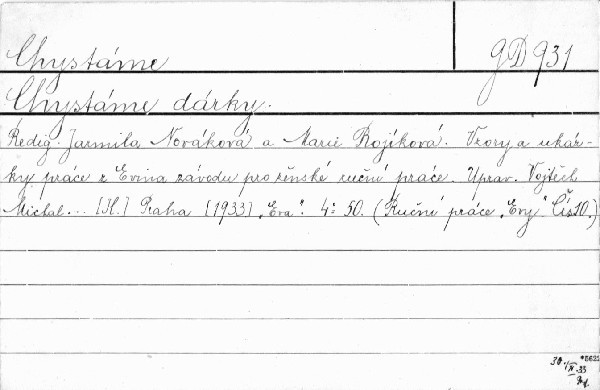 Chystáme
gD 931
Chystáme dárky.
Redig. Jarmila Nováková a Marie Rojíková. Vzory a ukáz-
ky práce z Evina závodu pro ženské ruční práce. Uprav. Vojtěch
Michal... [Il.] Praha [1933] „Eva". 4° 50. (Ruční práce „Evy" Čís 10.)